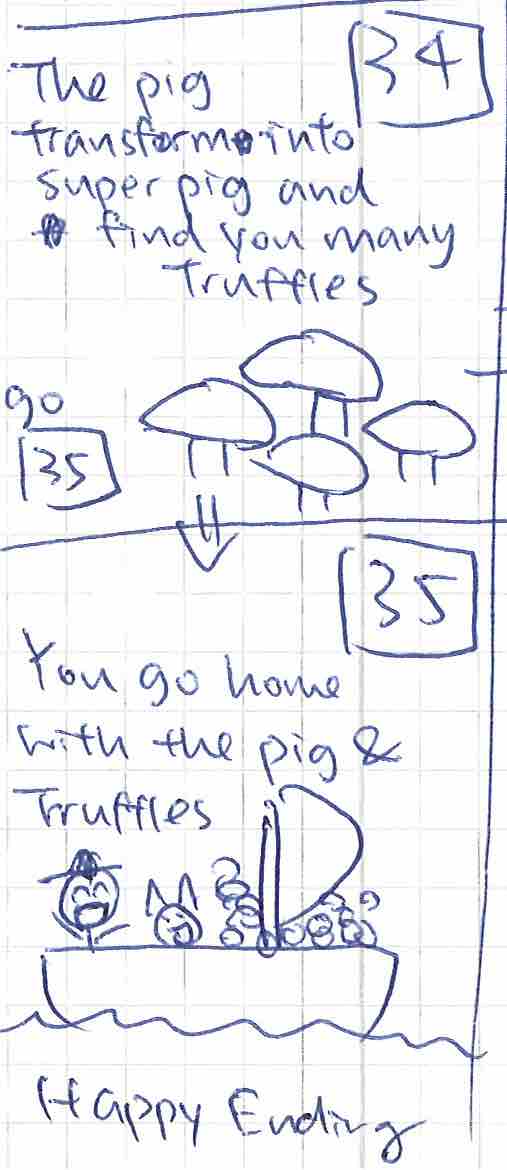 34
The pig
transform into
super pig and
find you many
Truffles
go
35
35
You go home
with the pig &
Trruffles
Happy Ending